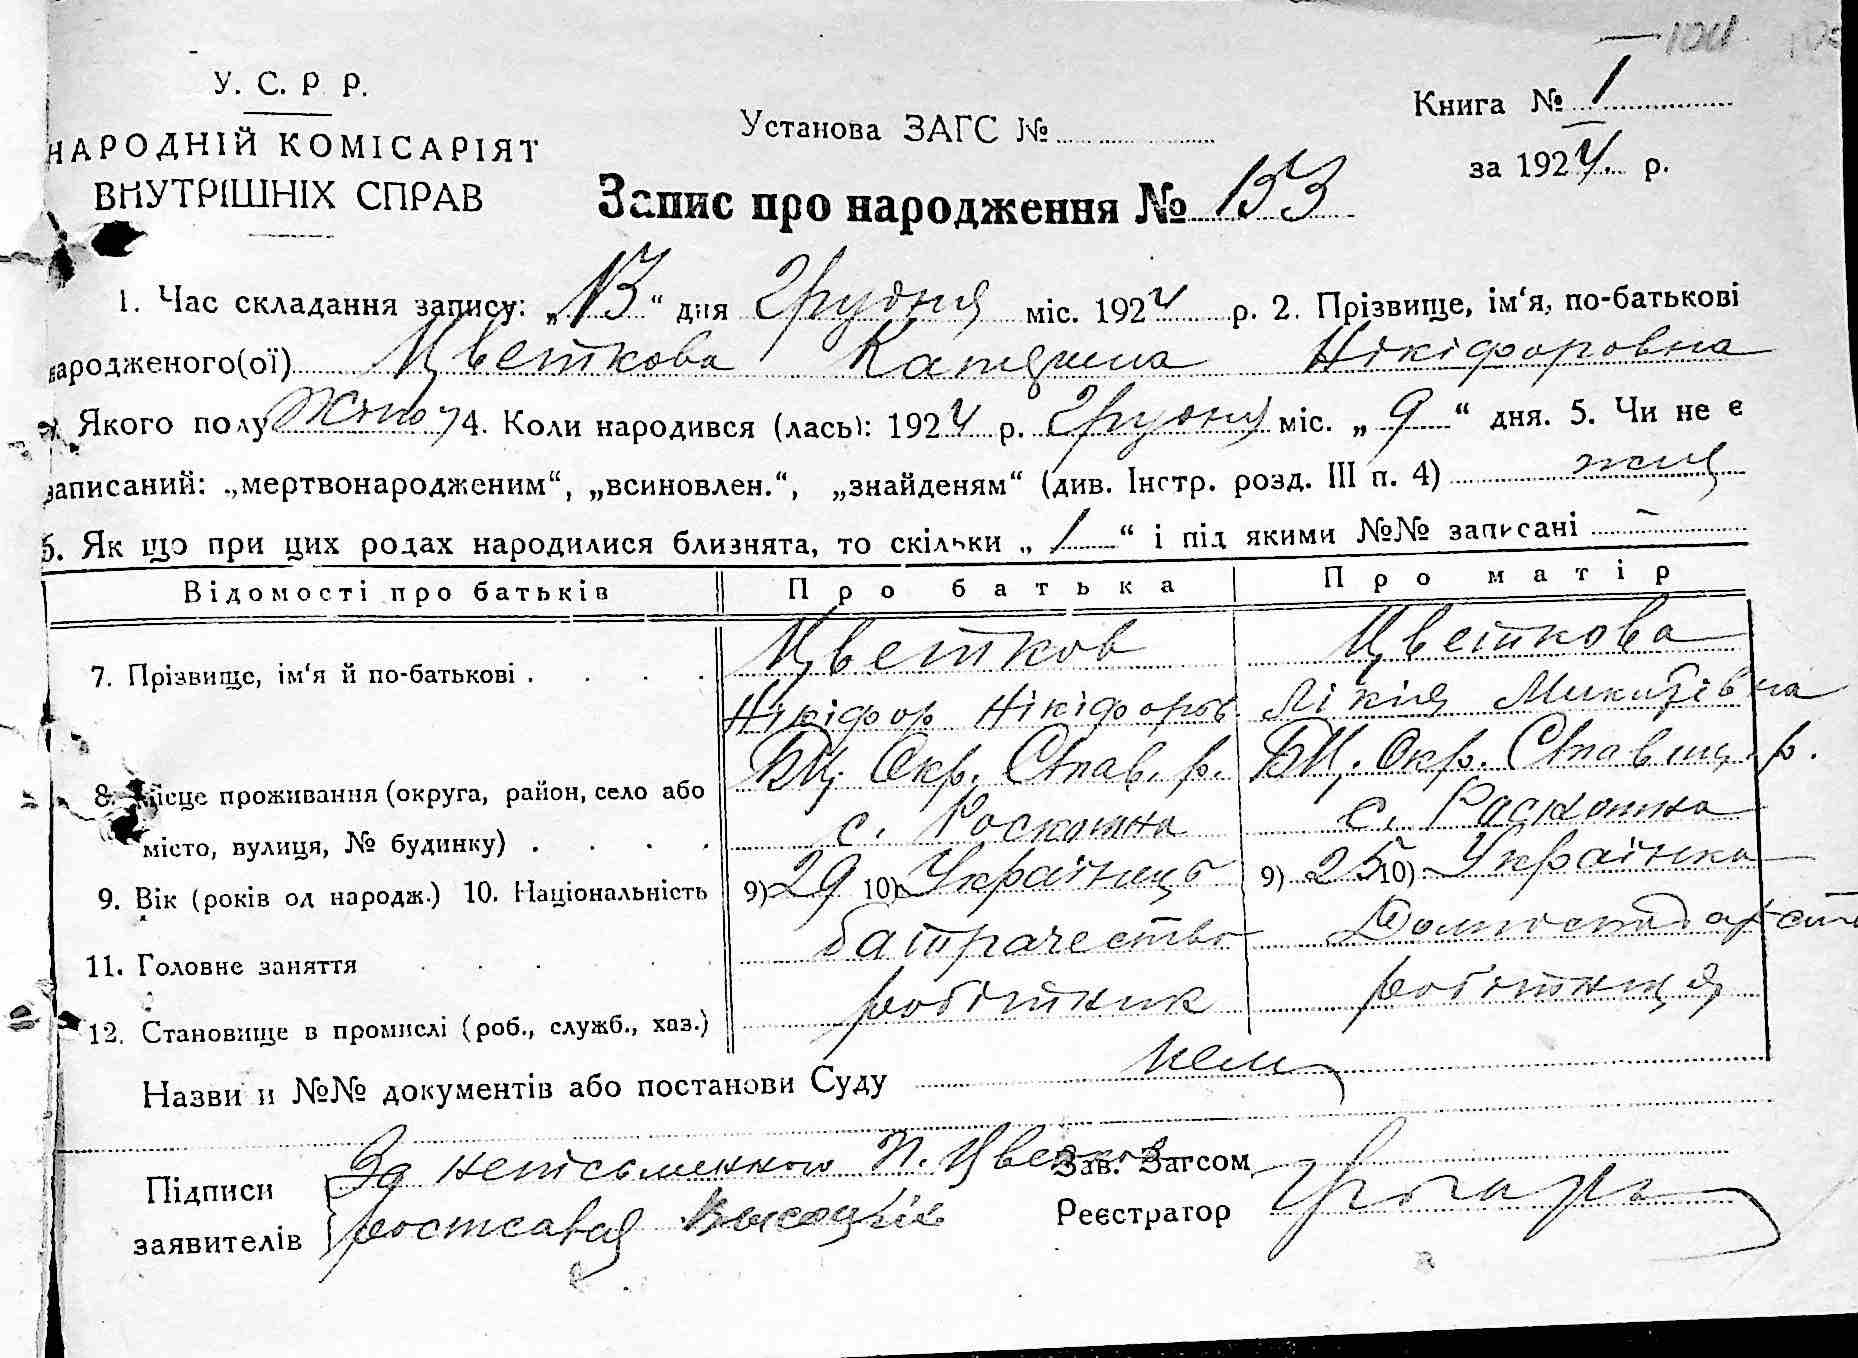 104
У. С. Р. Р.
НАРОДНІЙ КОМІСАРІЯТ
ВНУТРІШНІХ СПРАВ
Установа ЗАГС №
Книга № I
за 1924 р.
Запис про народження № 153
1. Час складання запису: „13“ дня Грудня міс. 1924 р. 2. Прізвище, ім‘я, по-батькові
народженого(ої) Цветкова Катерина Нікіфоровна
Якого полу жіноч 4. Коли народився (лась): 1924 р. Грудня міс. „9“ дня. 5. Чи не є
записаний: „мертвонародженим“, „всиновлен.“, „знайденям“ (див. Інстр. розд. III п. 4)
6. Як що при цих родах народилися близнята, то скільки „1“ і під якими №№ записані -
Відомості про батьків Про батька Про матір
7. Прізвище, ім‘я й по-батькові . . . . Цветков Цветкова
Нікіфор Нікіфоров. Лікія Микитівна
8. Місце проживання (округа, район, село або БЦ. Окр. Став. р. БЦ. Окр. Ставищ. р.
місто, вулиця, № будинку) . . . . с. Роскошна с. Роскошна
9. Вік (років од народж.) 10. Національність 9) 29 10) Українець 9) 25 10) Українка
11. Головне заняття . . . . батрачество
12. Становище в промислі (роб., служб., хаз.) робітник робітниця
Назви и №№ документів або постанови Суду нет
Підписи За неписьменного Н. Цветкова Зав. Загсом
заявителів росписався Высоцкій Реєстратор